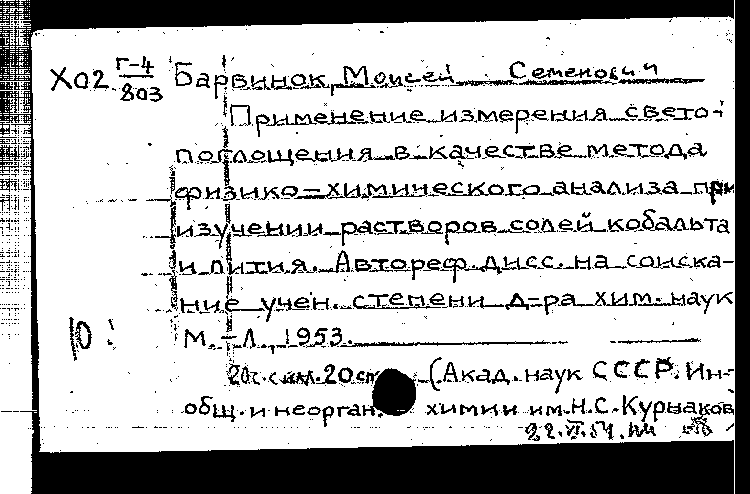 Х02 Г-4/803 Барвинок, Моисей Семенович
Применение измерения свето-
поглощения в качестве метода
физико-химического анализа при
изучении растворов солей кобальта
и лития. Автореф. дисс. на соиска-
ние учен. степени д-ра хим. наук
М.-Л., 1953.
20с. с илл. 20см (Акад. наук СССР. Ин-
общ. и неорган. химии им. Н.С. Курнаков
22.VI.54.